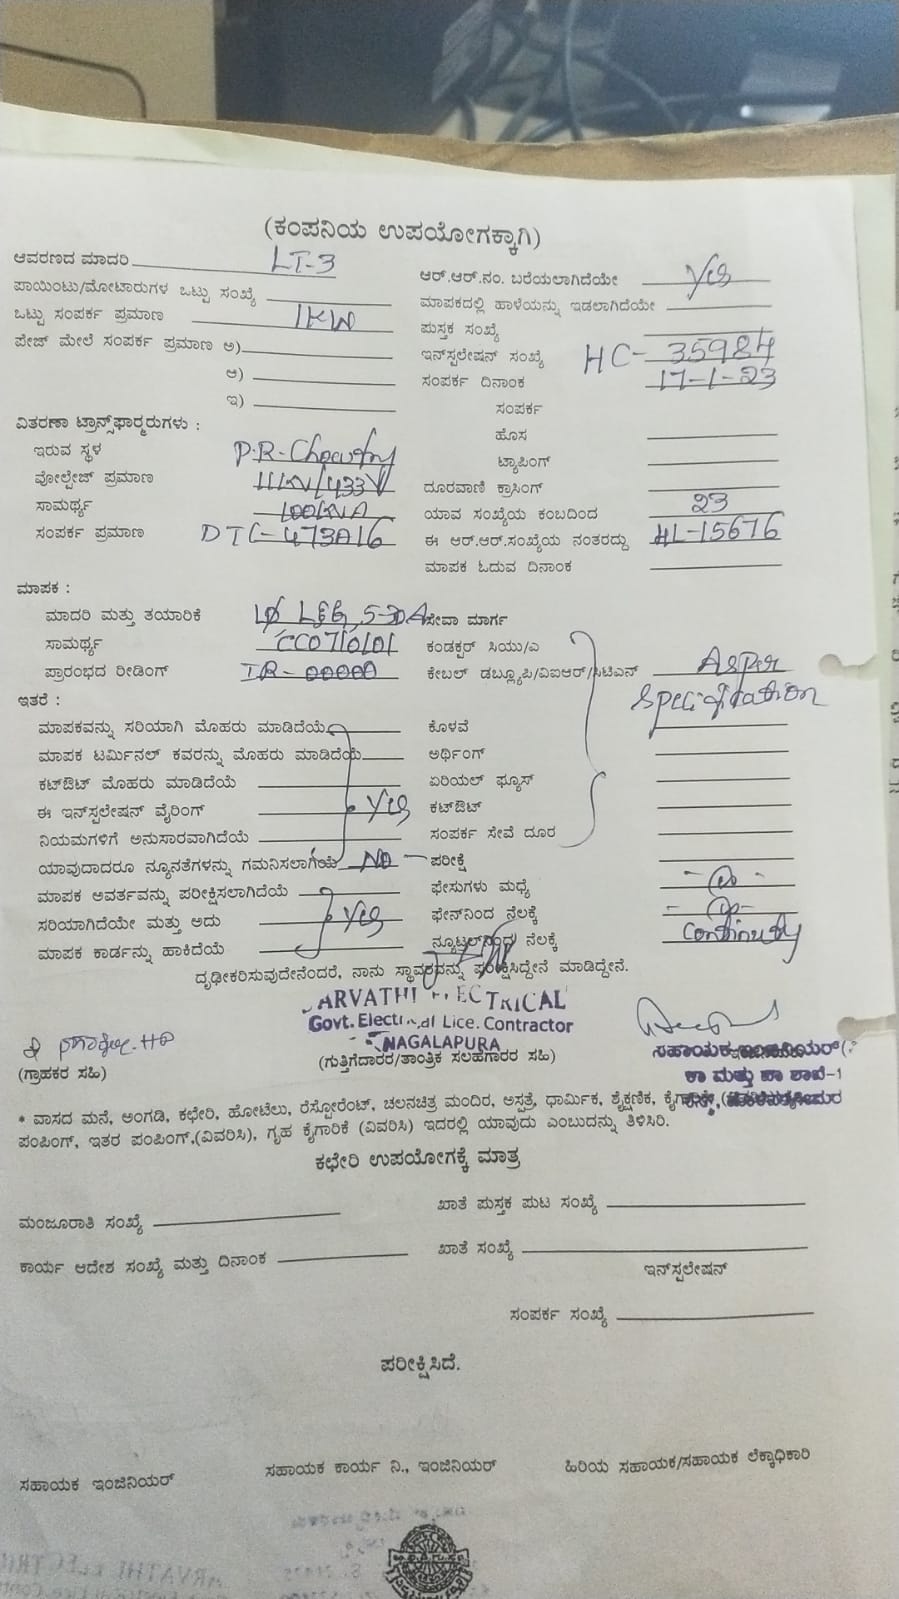 (ಕಂಪನಿಯ ಉಪಯೋಗಕ್ಕಾಗಿ)
ಆವರಣದ ಮಾದರಿ LT-3
ಆರ್.ಆರ್.ನಂ. ಬರೆಯಲಾಗಿದೆಯೇ Yes
ಪಾಯಿಂಟು/ಮೋಟಾರುಗಳ ಒಟ್ಟು ಸಂಖ್ಯೆ
ಮಾಪಕದಲ್ಲಿ ಹಾಳೆಯನ್ನು ಇಡಲಾಗಿದೆಯೇ
ಒಟ್ಟು ಸಂಪರ್ಕ ಪ್ರಮಾಣ 1KW
ಪುಸ್ತಕ ಸಂಖ್ಯೆ
ಪೇಜ್ ಮೇಲೆ ಸಂಪರ್ಕ ಪ್ರಮಾಣ ಅ)
ಇನ್‌ಸ್ಪಲೇಷನ್ ಸಂಖ್ಯೆ HC-35984
ಆ)
ಸಂಪರ್ಕ ದಿನಾಂಕ 17-1-23
ಇ)
ಸಂಪರ್ಕ
ವಿತರಣಾ ಟ್ರಾನ್ಸ್‌ಫಾರ್ಮರುಗಳು :
ಹೊಸ
ಇರುವ ಸ್ಥಳ P.R-
ಟ್ಯಾಪಿಂಗ್
ವೋಲ್ಟೇಜ್ ಪ್ರಮಾಣ 11KV/433V
ದೂರವಾಣಿ ಕ್ರಾಸಿಂಗ್
ಸಾಮರ್ಥ್ಯ 100KVA
ಯಾವ ಸಂಖ್ಯೆಯ ಕಂಬದಿಂದ 23
ಸಂಪರ್ಕ ಪ್ರಮಾಣ DTC-473A16
ಈ ಆರ್.ಆರ್.ಸಂಖ್ಯೆಯ ನಂತರದ್ದು HL-15676
ಮಾಪಕ ಓದುವ ದಿನಾಂಕ
ಮಾಪಕ :
ಮಾದರಿ ಮತ್ತು ತಯಾರಿಕೆ 1Ø L&G, 5-30A
ಸೇವಾ ಮಾರ್ಗ
ಸಾಮರ್ಥ್ಯ
ಕಂಡಕ್ಟರ್ ಸಿಯು/ಎ
ಪ್ರಾರಂಭದ ರೀಡಿಂಗ್ IR-00000
ಕೇಬಲ್ ಡಬ್ಲ್ಯೂಪಿ/ವಿಐಆರ್/ಸಿಟಿಎನ್ Asper
specification
ಇತರೆ :
ಮಾಪಕವನ್ನು ಸರಿಯಾಗಿ ಮೊಹರು ಮಾಡಿದೆಯೆ
ಕೊಳವೆ
ಮಾಪಕ ಟರ್ಮಿನಲ್ ಕವರನ್ನು ಮೊಹರು ಮಾಡಿದೆಯೆ
ಅರ್ಥಿಂಗ್
ಕಟ್‌ಔಟ್ ಮೊಹರು ಮಾಡಿದೆಯೆ
ಏರಿಯಲ್ ಫ್ಯೂಸ್
ಈ ಇನ್‌ಸ್ಪಲೇಷನ್ ವೈರಿಂಗ್ Yes
ಕಟ್‌ಔಟ್
ನಿಯಮಗಳಿಗೆ ಅನುಸಾರವಾಗಿದೆಯೆ
ಸಂಪರ್ಕ ಸೇವೆ ದೂರ
ಯಾವುದಾದರೂ ನ್ಯೂನತೆಗಳನ್ನು ಗಮನಿಸಲಾಗಿಯೆ NO
ಪರೀಕ್ಷೆ
ಮಾಪಕ ಅವರ್ತವನ್ನು ಪರೀಕ್ಷಿಸಲಾಗಿದೆಯೆ
ಫೇಸುಗಳು ಮಧ್ಯೆ
ಸರಿಯಾಗಿದೆಯೇ ಮತ್ತು ಅದು Yes
ಫೇಸ್‌ನಿಂದ ನೆಲಕ್ಕೆ
ಮಾಪಕ ಕಾರ್ಡನ್ನು ಹಾಕಿದೆಯೆ
ನ್ಯೂಟ್ರಲ್‌ನಿಂದ ನೆಲಕ್ಕೆ continuity
ದೃಢೀಕರಿಸುವುದೇನೆಂದರೆ, ನಾನು ಸ್ಥಾವರವನ್ನು ಪರೀಕ್ಷಿಸಿದ್ದೇನೆ ಮಾಡಿದ್ದೇನೆ.
ARVATHI ELECTRICAL
Govt. Electrical Lice. Contractor
NAGALAPURA
(ಗ್ರಾಹಕರ ಸಹಿ)
(ಗುತ್ತಿಗೆದಾರರ/ತಾಂತ್ರಿಕ ಸಲಹೆಗಾರರ ಸಹಿ)
ಸಹಾಯಕ ಇಂಜಿನಿಯರ್
ಕಾ ಮತ್ತು ಪಾ ಶಾಖೆ-1
* ವಾಸದ ಮನೆ, ಅಂಗಡಿ, ಕಛೇರಿ, ಹೋಟೆಲು, ರೆಸ್ಟೋರೆಂಟ್, ಚಲನಚಿತ್ರ ಮಂದಿರ, ಅಸ್ಪತ್ರೆ, ಧಾರ್ಮಿಕ, ಶೈಕ್ಷಣಿಕ, ಕೈಗಾರಿಕೆ,
ಪಂಪಿಂಗ್, ಇತರ ಪಂಪಿಂಗ್,(ವಿವರಿಸಿ), ಗೃಹ ಕೈಗಾರಿಕೆ (ವಿವರಿಸಿ) ಇದರಲ್ಲಿ ಯಾವುದು ಎಂಬುದನ್ನು ತಿಳಿಸಿರಿ.
ಕಛೇರಿ ಉಪಯೋಗಕ್ಕೆ ಮಾತ್ರ
ಮಂಜೂರಾತಿ ಸಂಖ್ಯೆ
ಖಾತೆ ಪುಸ್ತಕ ಪುಟ ಸಂಖ್ಯೆ
ಕಾರ್ಯ ಆದೇಶ ಸಂಖ್ಯೆ ಮತ್ತು ದಿನಾಂಕ
ಖಾತೆ ಸಂಖ್ಯೆ
ಇನ್‌ಸ್ಪಲೇಷನ್
ಸಂಪರ್ಕ ಸಂಖ್ಯೆ
ಪರೀಕ್ಷಿಸಿದೆ.
ಸಹಾಯಕ ಇಂಜಿನಿಯರ್
ಸಹಾಯಕ ಕಾರ್ಯ ನಿ., ಇಂಜಿನಿಯರ್
ಹಿರಿಯ ಸಹಾಯಕ/ಸಹಾಯಕ ಲೆಕ್ಕಾಧಿಕಾರಿ